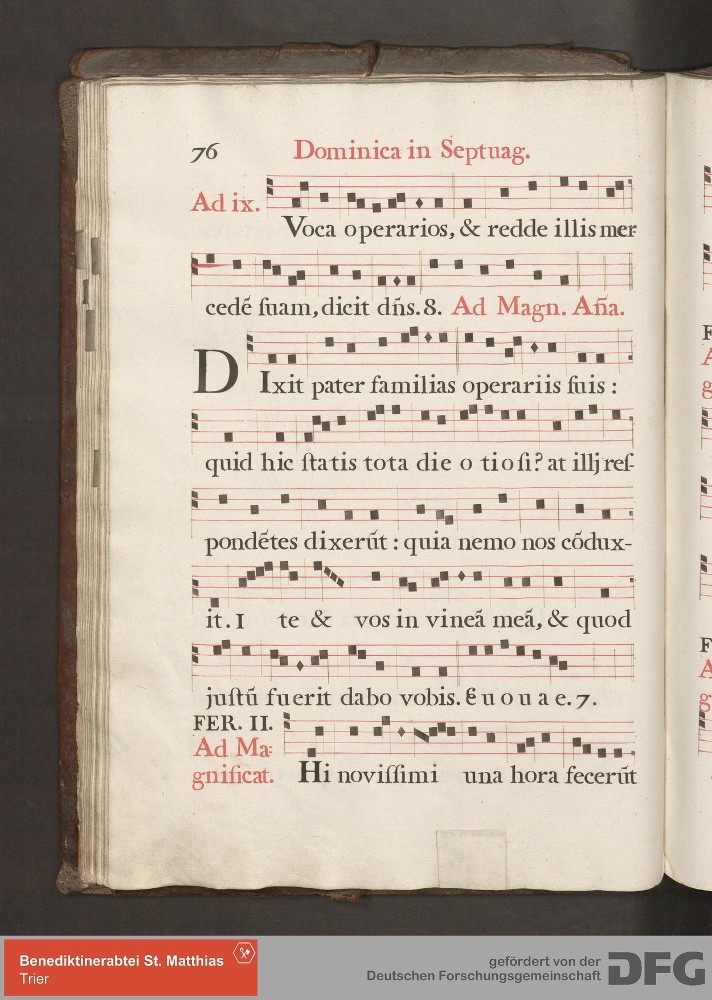 76 Dominica in Septuag.
Ad ix. Voca operarios, & redde illis mer-
cedē ſuam, dicit dn̄s. 8. Ad Magn. Aña.
DIxit pater familias operariis ſuis :
quid hic ſtatis tota die o tioſi? at illj reſ-
pondētes dixerūt : quia nemo nos cōdux-
it. I te & vos in vineā meā, & quod
juſtū fuerit dabo vobis. Euouae. 7.
FER. II.
Ad Ma=
gnificat. Hi noviſſimi una hora fecerūt
F
A
g
F
A
g
Benediktinerabtei St. Matthias
Trier
gefördert von der
Deutschen Forschungsgemeinschaft
DFG